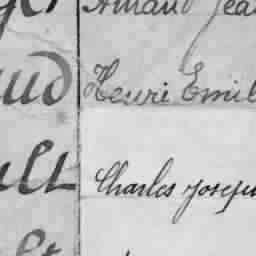 Armand Jea
ud Henri Emil
ult Charles Joseph